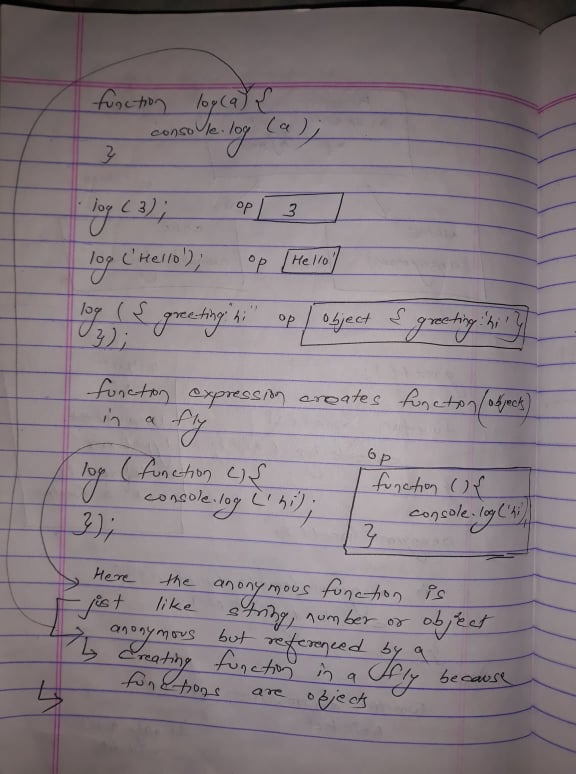 function log(a) {
console.log (a);
}
log (3); op 3
log ('Hello'); op Hello'
log ({ greeting:'hi' op object { greeting:'hi' }
});
function expression creates function (objects)
in a fly
log (function () {
console.log ('hi);
});
op
function () {
console.log ('hi')
}
Here the anonymous function is
jist like string, number or object
anonymous but referenced by a
creating function in a fly because
functions are objects